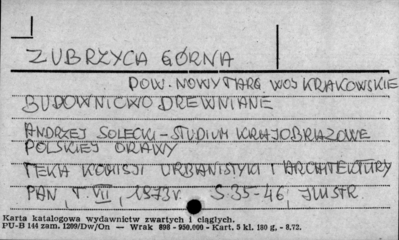 ZUBRZYCA GÓRNA
POW. NOWY TARG WOJ KRAKOWSKIE
BUDOWNICWO DREWNIANE
ANDRZEJ SOLECKI - STUDIUM KRAJOBRAZOWE
POLSKIEJ ORAWY
TEKA KOMISJI URBANISTYKI I ARCHITEKTURY
PAN, T. VII, 1973r. S 35-46, ILUSTR.
Karta katalogowa wydawnictw zwartych i ciągłych.
PU-B 144 zam. 1209/Dw/On — Wrak 898 - 950.000 - Kart. 5 kl. 180 g. - 8.72.